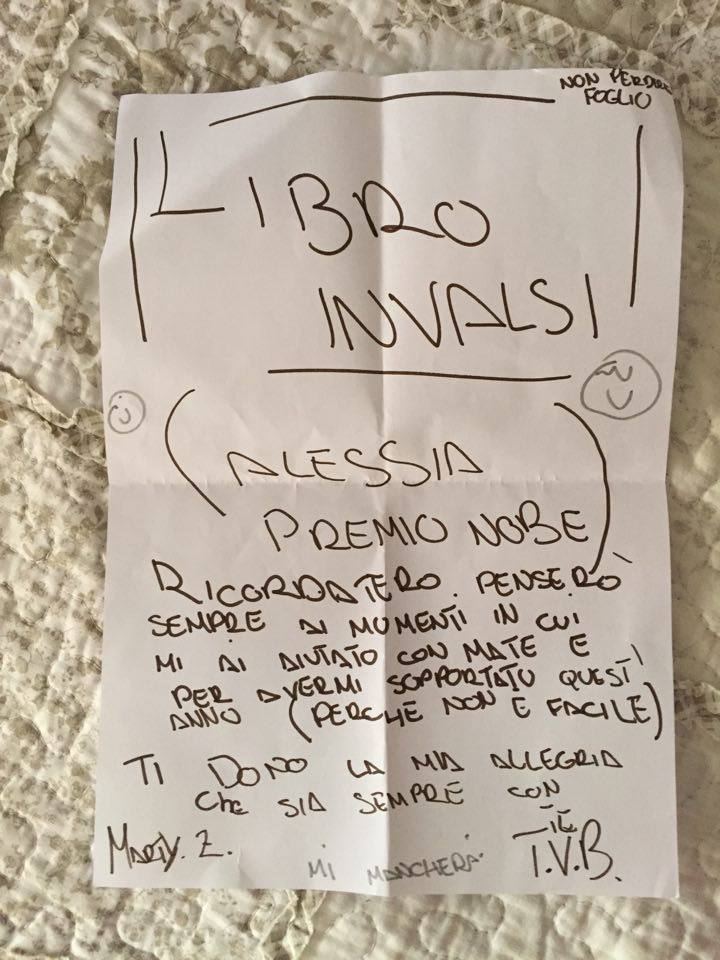 NON PERDERE
FOGLIO
LIBRO
INVALSI
(ALESSIA
PREMIO NOBE)
RICORDATERO. PENSERÒ
SEMPRE AI MOMENTI IN CUI
MI AI AIUTATO CON MATE E
PER AVERMI SOPPORTATO QUEST'
ANNO (PERCHE NON È FACILE)
TI DONO LA MIA ALLEGRIA
Che SIA SEMPRE CON
TE
MARTY. Z.
T.V.B.
MI MANCHERAI